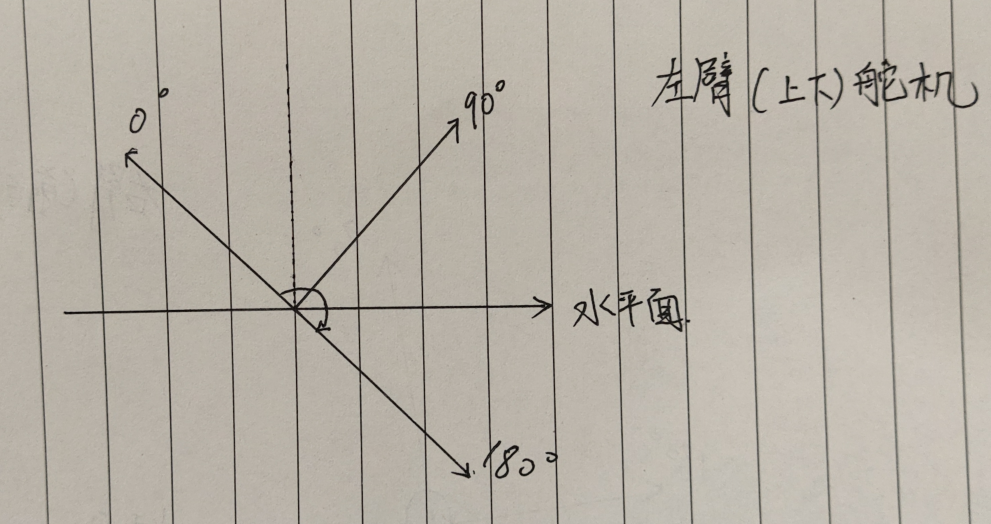 左臂(上下)舵机
0°
90°
水平面.
180°